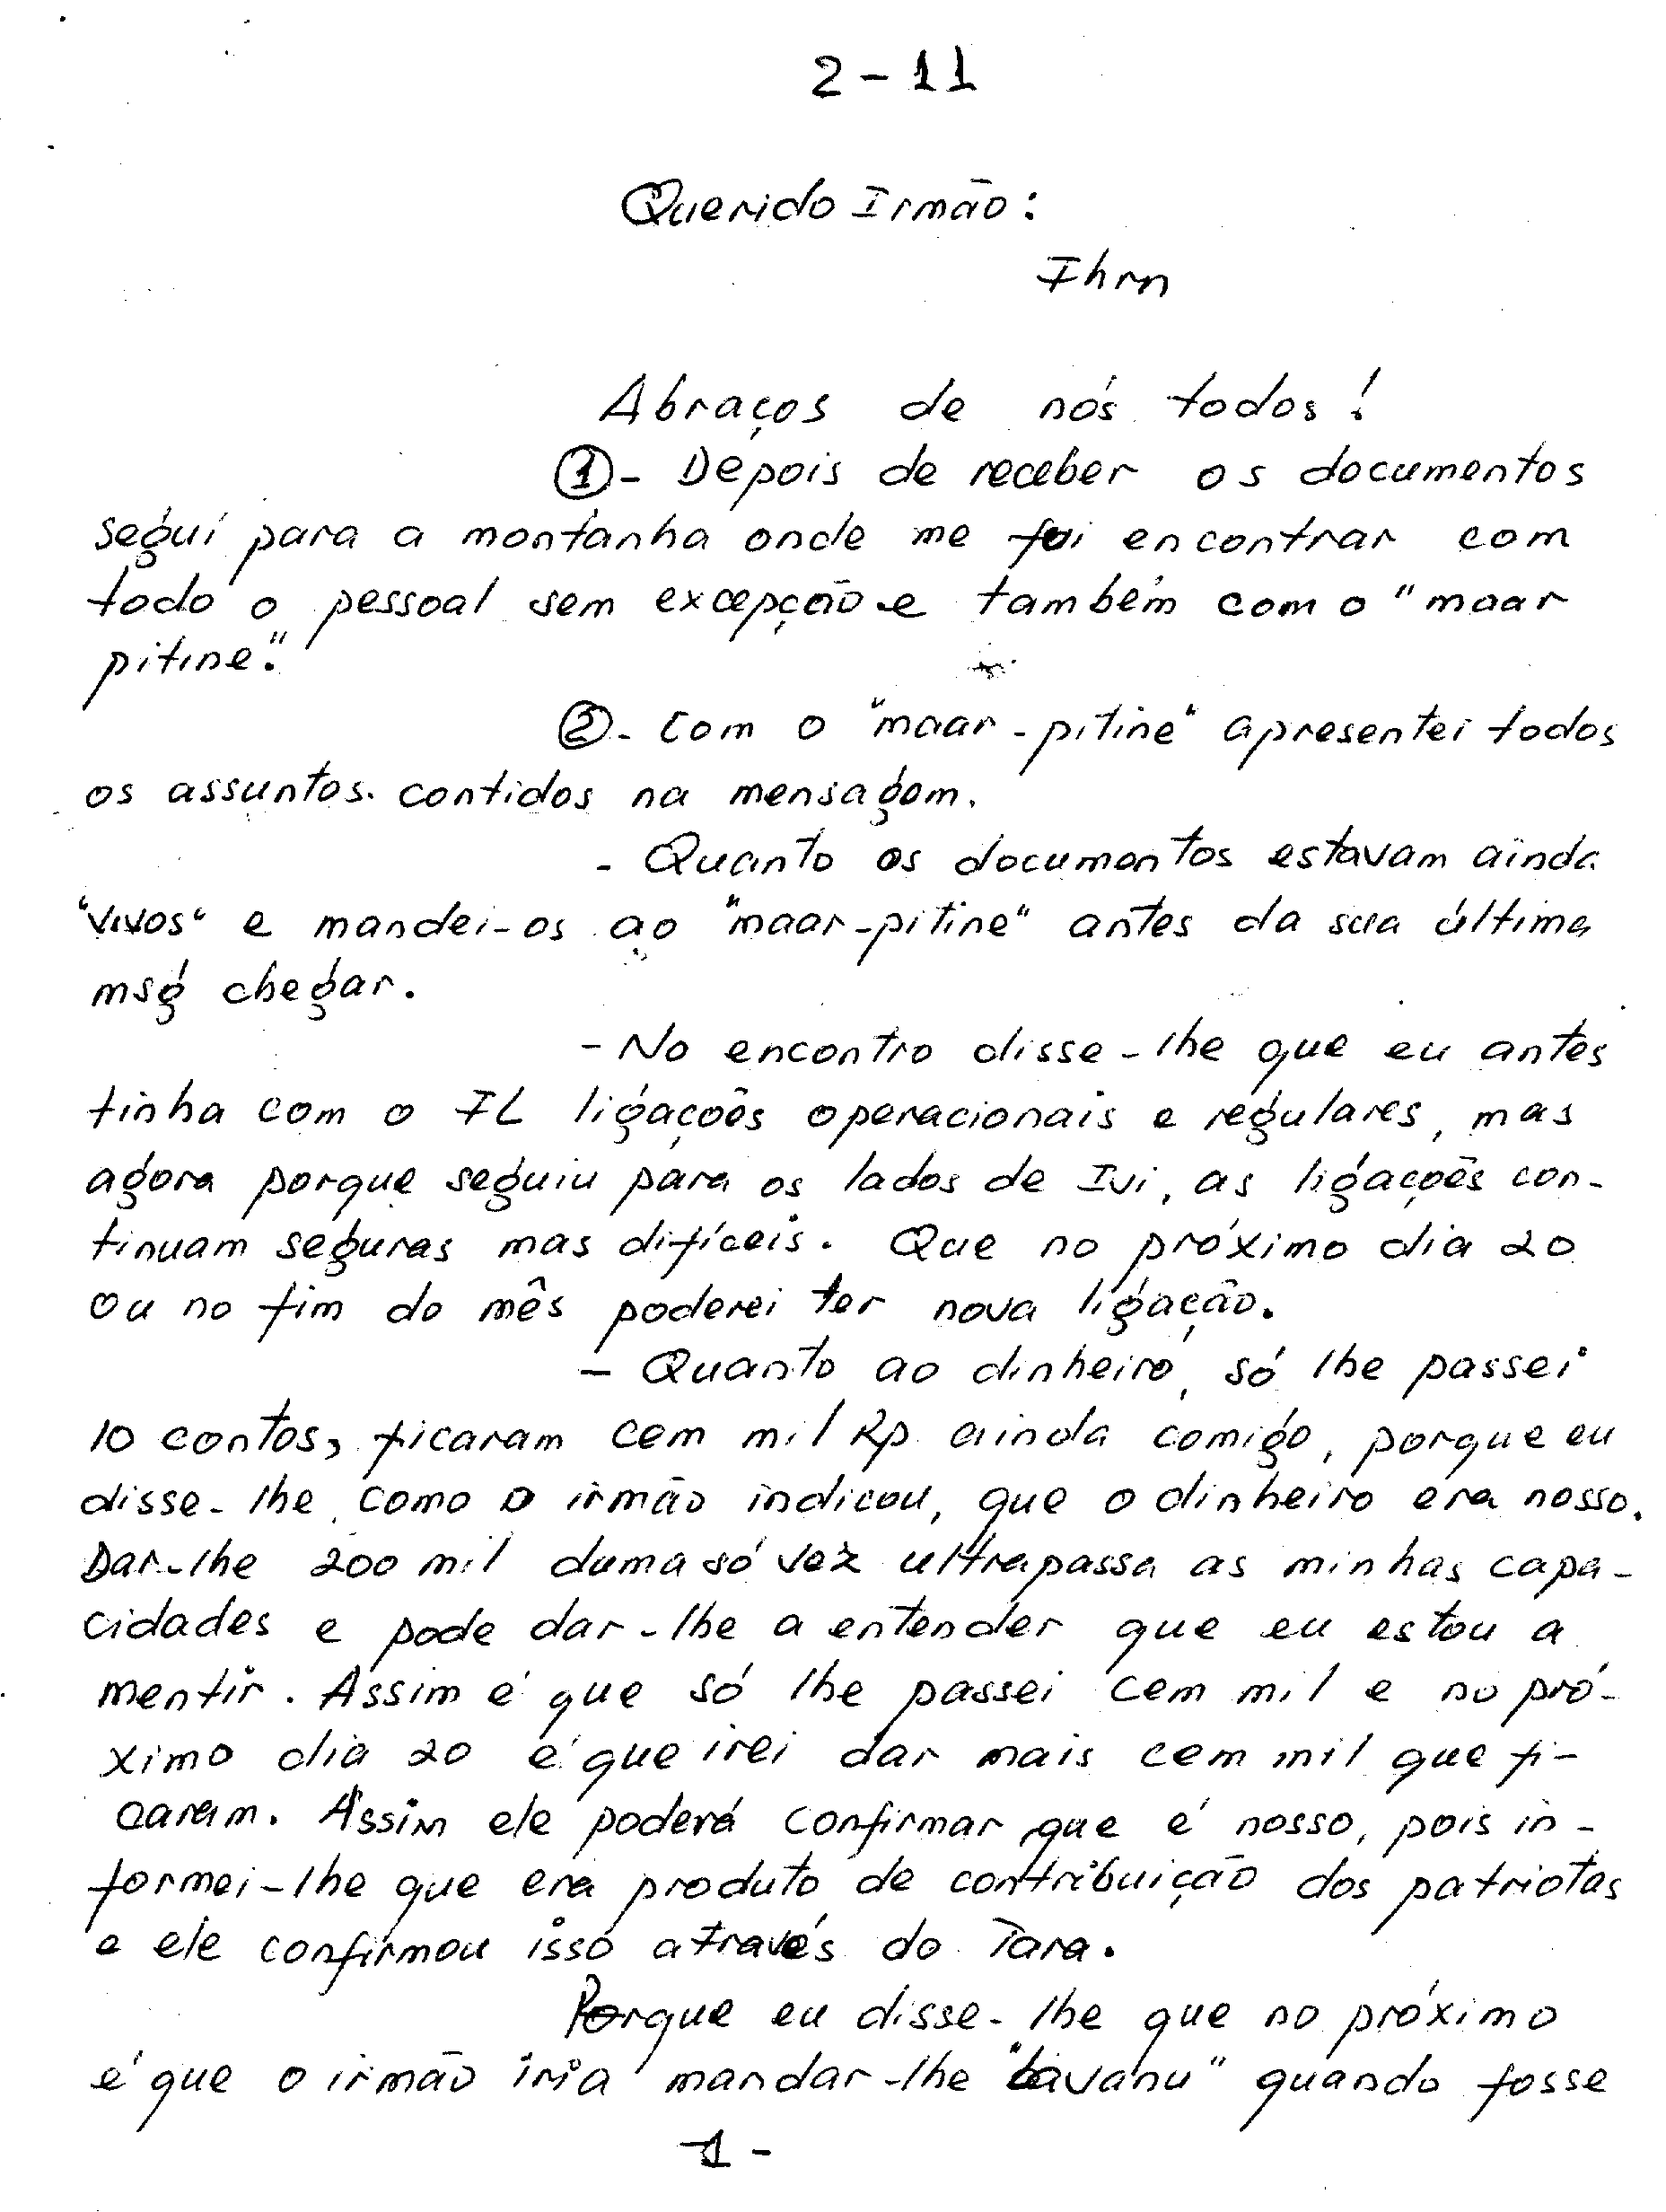 2-11
Querido Irmão:
Ihm
Abraços de nós todos!
①- Depois de receber os documentos
seguí para a montanha onde me foi encontrar com
todo o pessoal sem excepção e também com o "maar
pitine".
②- Com o "maar-pitine" apresentei todos
os assuntos contidos na mensagem.
- Quanto os documentos estavam ainda
"vivos" e mandei-os ao "maar-pitine" antes da sua última
msg chegar.
- No encontro disse-lhe que eu antes
tinha com o IL ligações operacionais e regulares, mas
agora porque seguiu para os lados de Ivi, as ligações con-
tinuam seguras mas difíceis. Que no próximo dia 20
ou no fim do mês poderei ter nova ligação.
- Quanto ao dinheiro, só lhe passei
10 contos, ficaram cem mil Rp ainda comigo, porque eu
disse-lhe, como o irmão indicou, que o dinheiro era nosso.
Dar-lhe 200 mil duma só vez ultrapassa as minhas capa-
cidades e pode dar-lhe a entender que eu estou a
mentir. Assim é que só lhe passei cem mil e no pró-
ximo dia 20 é que irei dar mais cem mil que fi-
caram. Assim ele poderá confirmar que é nosso, pois in-
formei-lhe que era produto de contribuição dos patriotas
e ele confirmou isso através do Tara.
Porque eu disse-lhe que no próximo
é que o irmão iria mandar-lhe "bavanu" quando fosse
-1-